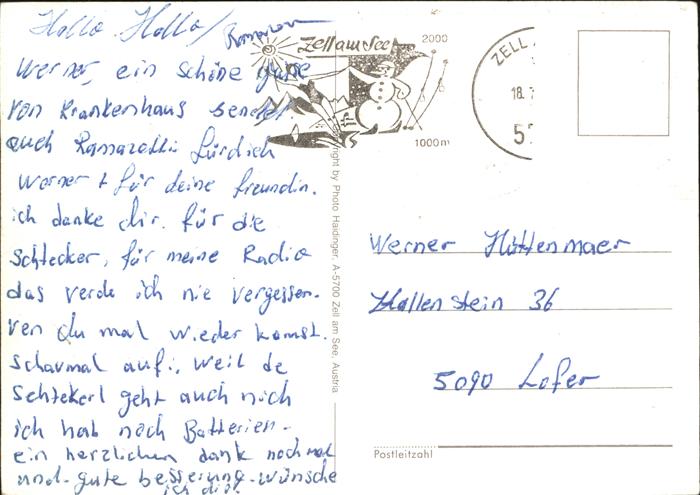 Hallo Hallo/
Werner, ein schöne grüse
von Krankenhaus sendet
auch Ramazotti fürdich
Werner + für deine freundin.
ich danke dir. für die
schtecker, für meine Radio
das verde ich nie vergessen.
ven du mal wieder komst.
schavmal auf:, weil de
Schtekerl geht auch nich
ich hab noch Batterien.
ein herzlichen dank nochmal
und gute besserung. wünsche
ich dir.
Zell am See
2000
1000m
ZELL
18.
5
right by Photo Haidinger, A-5700 Zell am See, Austria
Werner Hüttenmaer
Hallenstein 36
5090 Lofer
Postleitzahl